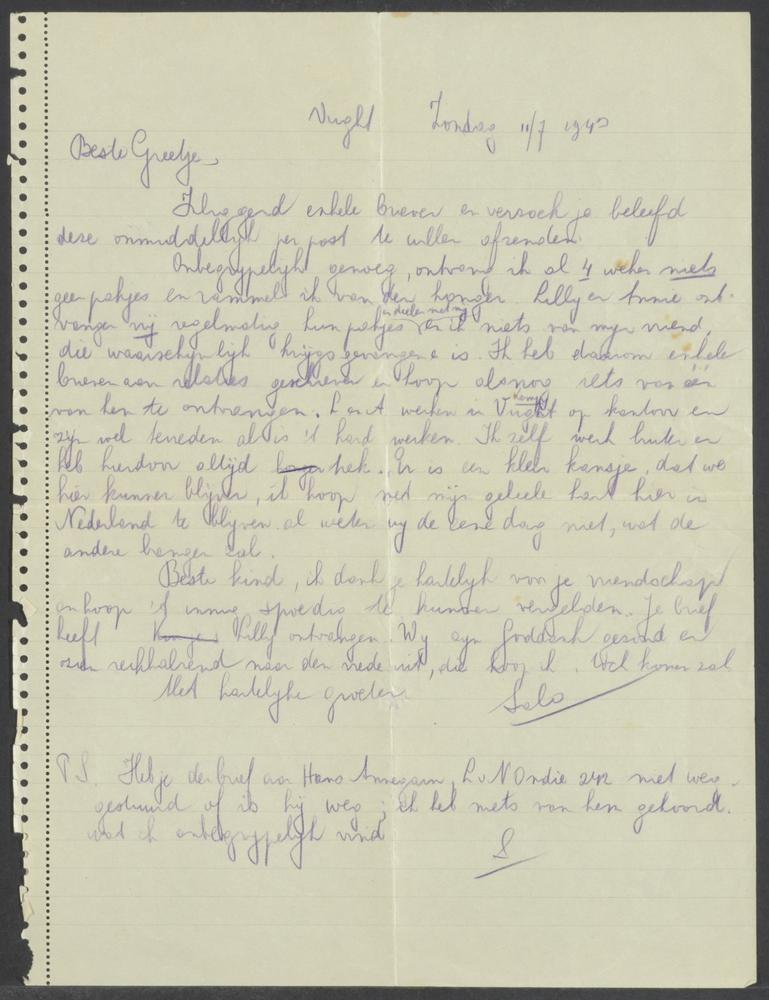 Vught Zondag 11/7 1943
Beste Greetje,
Hierbij gaand enkele brieven en verzoek je beleefd
deze onmiddellijk per post te willen afzenden.
Onbegrijpelijk genoeg, ontvang ik al 4 weken niets
geen pakjes en rammel ik van den honger. Lilly en Annie ont-
vangen vrij regelmatig hun pakjes en deelen met mij en ik niets van mijn vriend,
die waarschijnlijk krijgsgevangene is. Ik heb daarom enkele
brieven aan relaties geschreven en hoop alsnog iets van één
van hen te ontvangen. L en A werken in kamp Vught op kantoor en
zijn wel tevreden al is 't hard werken. Ik zelf werk buiten en
heb hierdoor altijd trek. Er is een klein kansje, dat we
hier kunnen blijven, ik hoop met mijn geheele hart hier in
Nederland te blijven al weten wij de eene dag niet, wat de
andere brengen zal.
Beste kind, ik dank je hartelijk voor je vriendschap
en hoop 't innig spoedig te kunnen vergelden. Je brief
heeft Lilly ontvangen. Wij zijn Goddank gezond en
zien reikhalzend naar den vrede uit, die hoop ik. Wel komen zal
Met hartelijke groeten Salo
P.S. Heb je de brief aan Hans Annegarn, L v N Ondie 242 niet weg-
gestuurd of is hij weg; ik heb niets van hem gehoord.
wat ik onbegrijpelijk vind
S